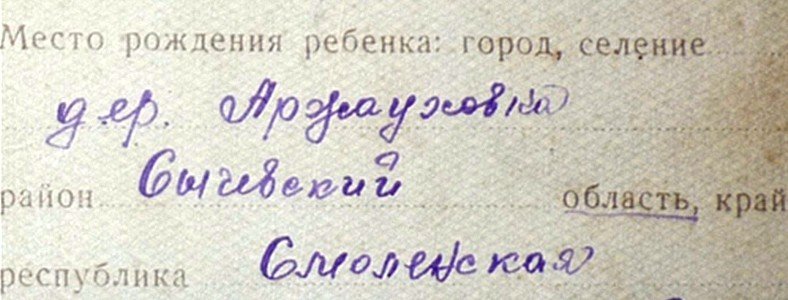 Место рождения ребенка: город, селение
дер. Аржауховка
район Сычевский область, край
республика Смоленская